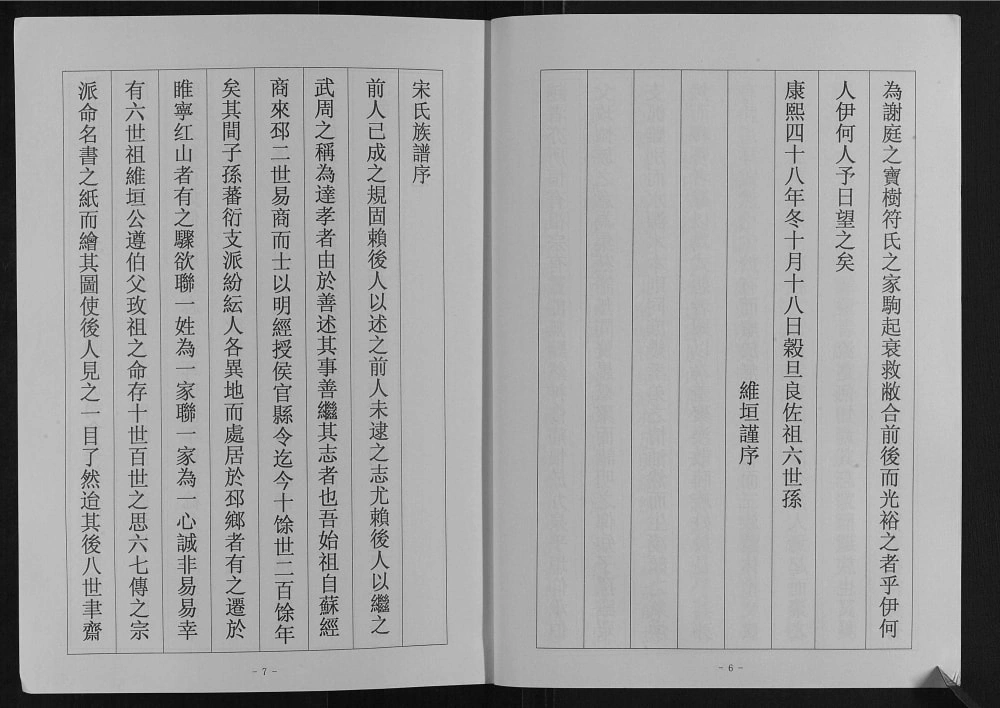 為謝庭之寶樹符氏之家駒起衰救敝合前後而光裕之者乎伊何
人伊何人予日望之矣
康熙四十八年冬十月十八日穀旦良佐祖六世孫
維垣謹序
- 6 -
宋氏族譜序
前人已成之規固賴後人以述之前人未逮之志尤賴後人以繼之
武周之稱為達孝者由於善述其事善繼其志者也吾始祖自蘇經
商來邳二世易商而士以明經授侯官縣令迄今十馀世二百馀年
矣其間子孫蕃衍支派紛紜人各異地而處居於邳鄉者有之遷於
睢寧红山者有之驟欲聯一姓為一家聯一家為一心誠非易易幸
有六世祖維垣公遵伯父玫祖之命存十世百世之思六七傳之宗
派命名書之紙而繪其圖使後人見之一目了然迨其後八世聿齋
- 7 -